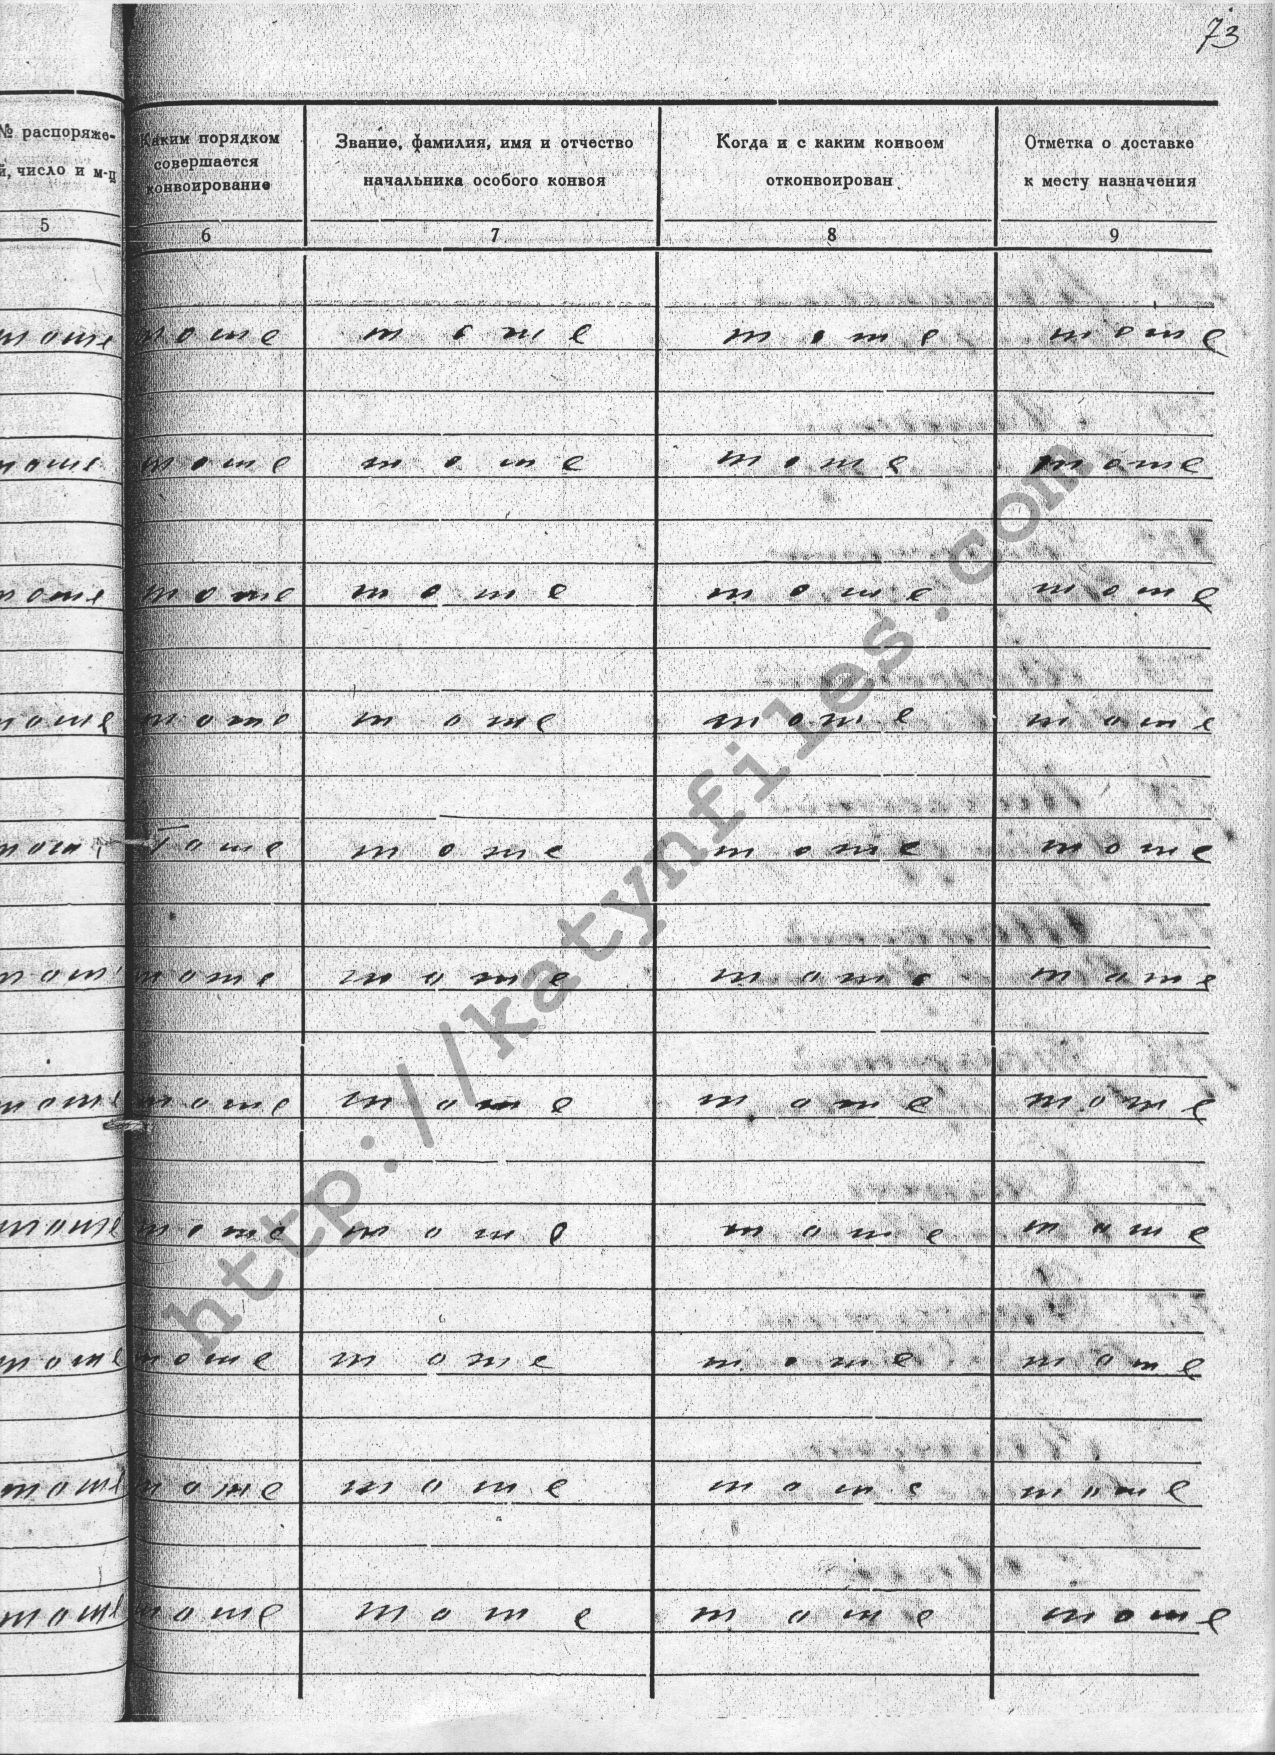 73
№ распоряже-
й, число и м-ц
Каким порядком
совершается
конвоирование
Звание, фамилия, имя и отчество
начальника особого конвоя
Когда и с каким конвоем
отконвоирован
Отметка о доставке
к месту назначения
5 6 7 8 9
тоже тоже тоже тоже тоже
тоже тоже тоже тоже тоже
тоже тоже тоже тоже тоже
тоже тоже тоже тоже тоже
тоже Тоже тоже тоже тоже
тоже тоже тоже тоже тоже
тоже тоже тоже тоже тоже
тоже тоже тоже тоже тоже
тоже тоже тоже тоже тоже
тоже тоже тоже тоже тоже
тоже тоже тоже тоже тоже
http://katynfiles.com